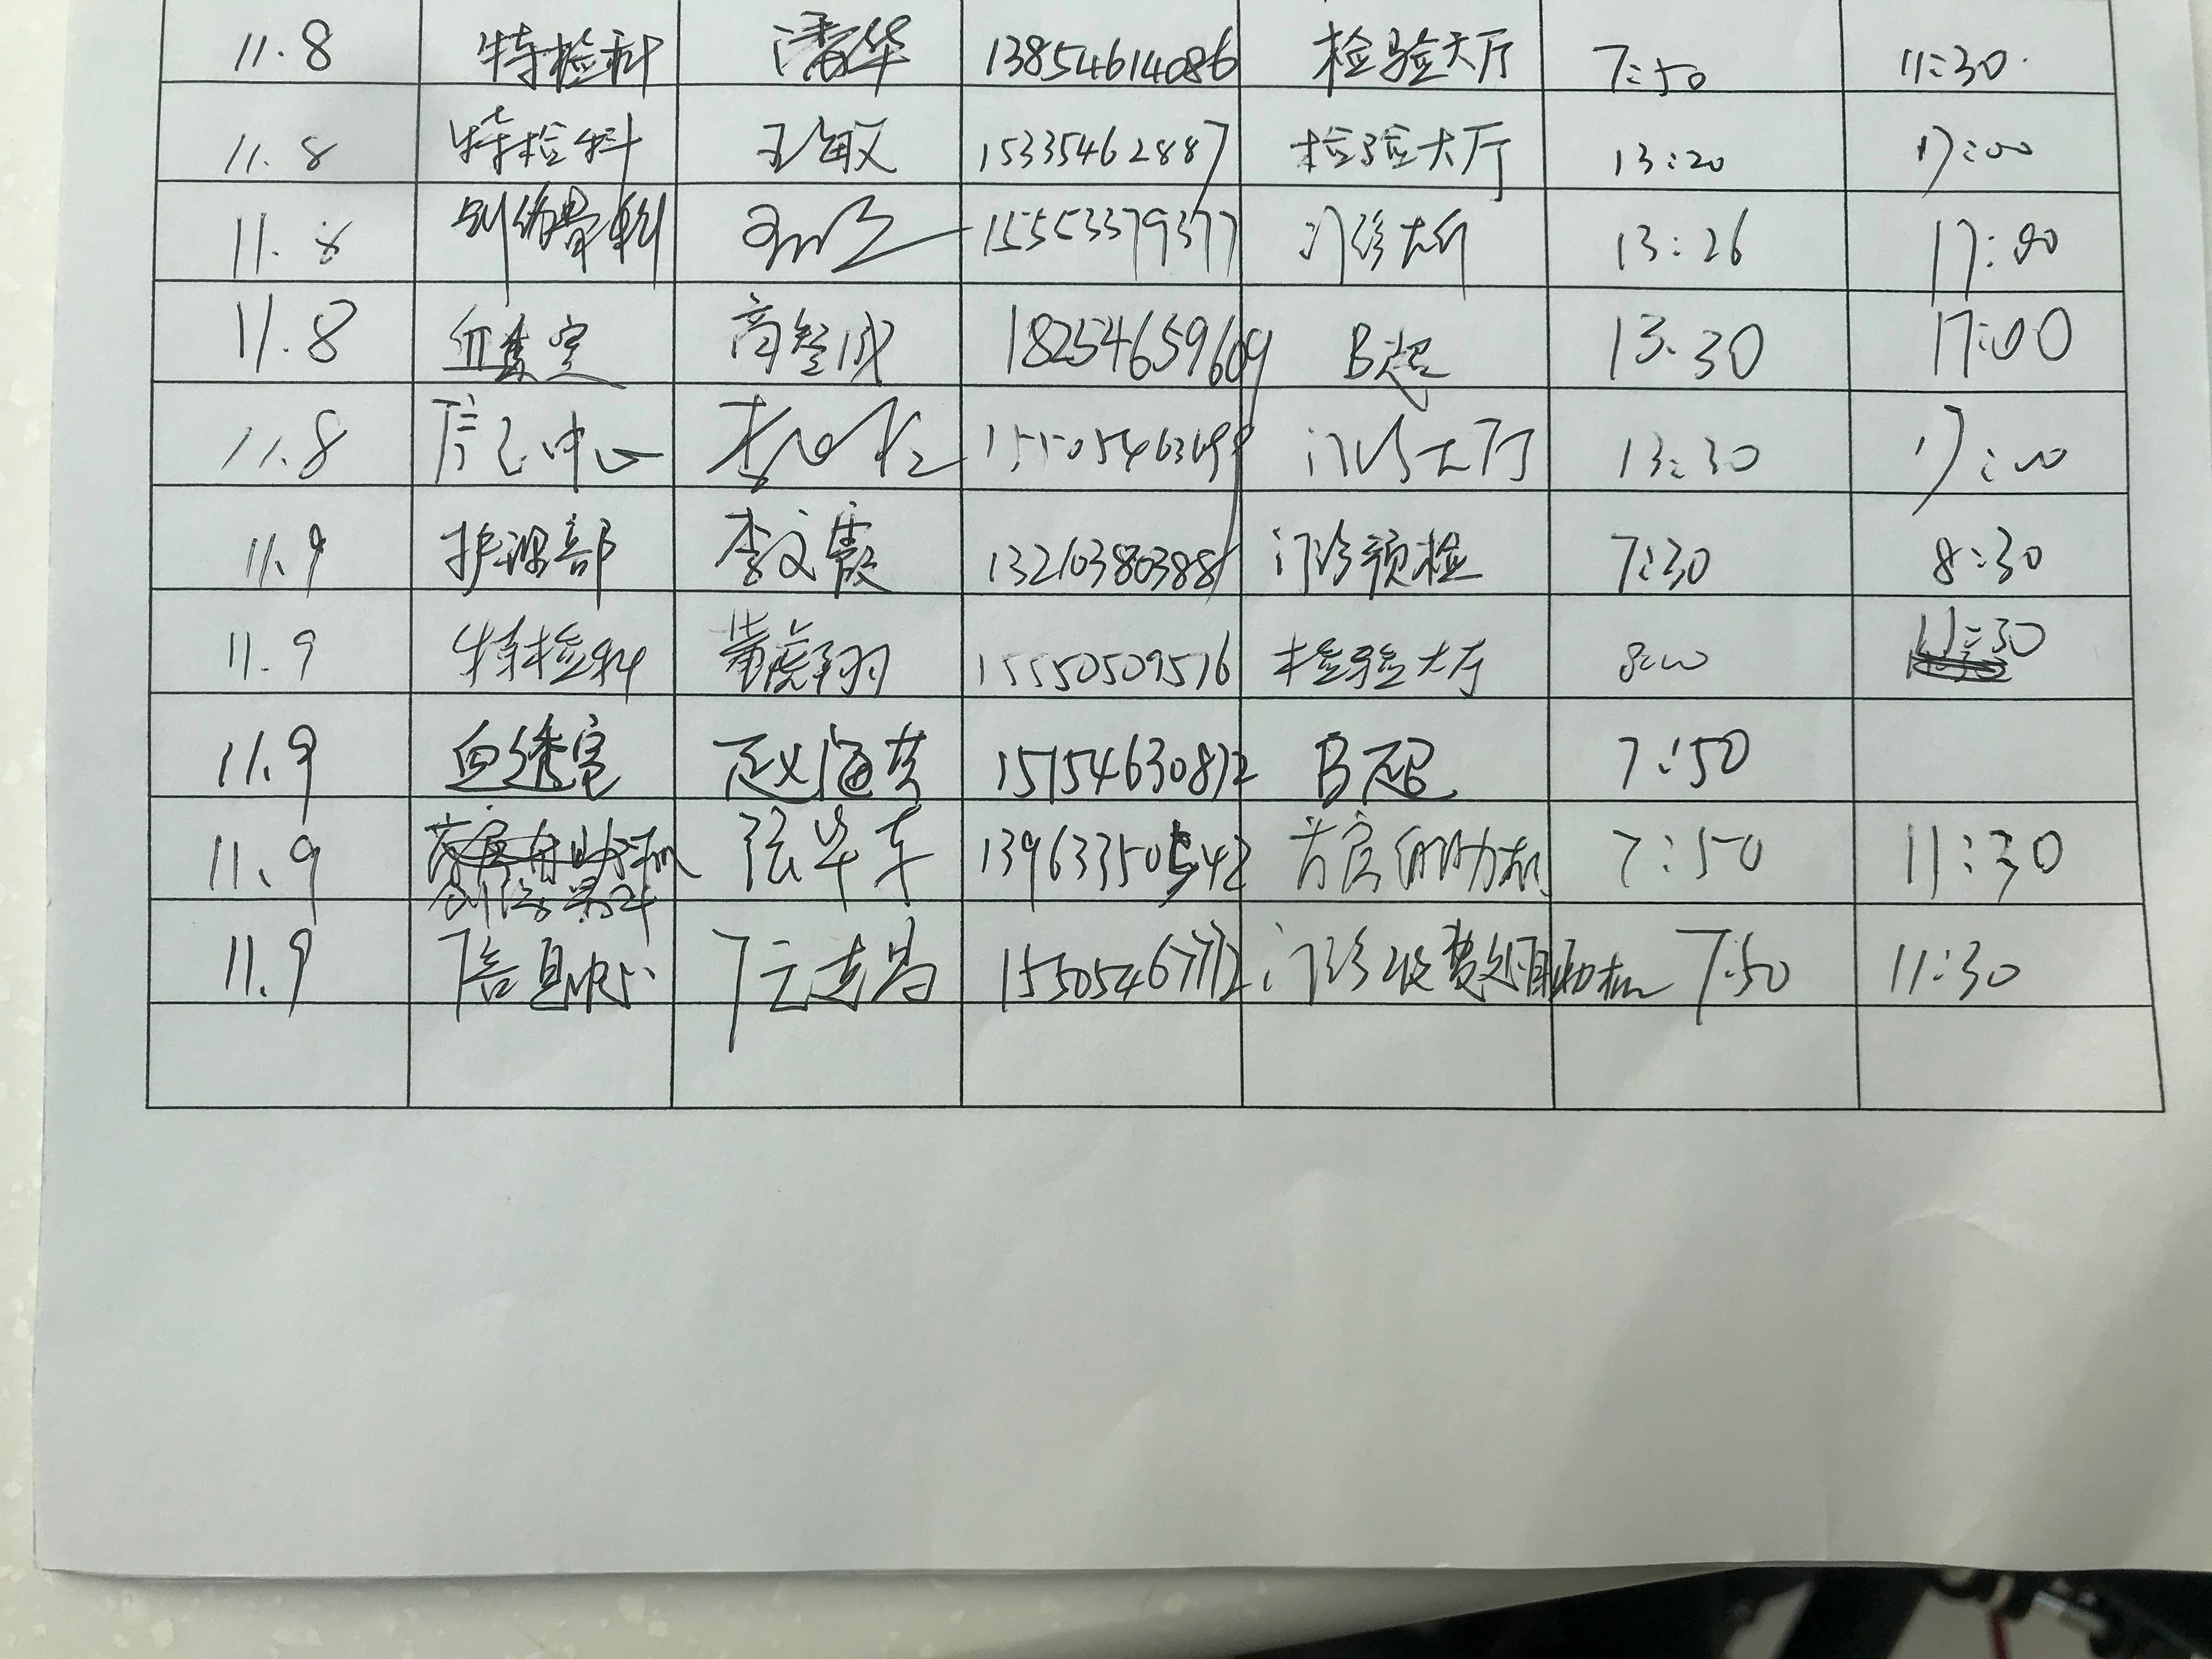 11.8 特检科 潘华 13854614086 检验大厅 7:50 11:30
11.8 特检科 王敏 15335462887 检验大厅 13:20 17:00
11.8 创伤骨科 15553379377 门诊大厅 13:26 17:00
11.8 血透室 商智成 18254659609 B超 13:30 17:00
11.8 信息中心 门诊大厅 13:30 17:00
11.9 护理部 李文霞 门诊预检 7:30 8:30
11.9 特检科 15550509516 检验大厅 8:00 11:30
11.9 血透室 赵海英 15154630812 B超 7:50
11.9 创伤骨科 张华东 13963350542 7:50 11:30
11.9 信息中心 门诊收费处自助机 7:50 11:30